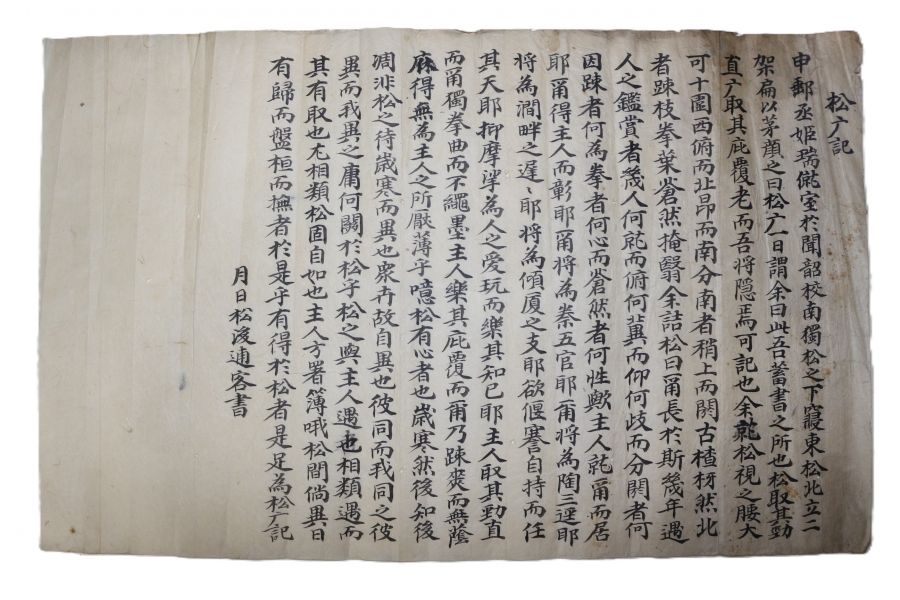 松广記
申郵丞姬瑞僦室於聞韶校南獨松之下寢東松北立二
架扁以茅顏之曰松广一日謂余曰此吾蓄書之所也松取其勁
直广取其庇覆老而吾將隱焉可記也余就松視之腰大
可十圍西俯而北昂而南分南者稍上而閼古楂枒然北
者踈枝拳葉蒼然掩翳余詰松曰爾長於斯幾年遇
人之鑑賞者幾人何就而俯何冀而仰何歧而分閼者何
因踈者何為拳者何心而蒼然者何性歟主人就爾而居
耶爾得主人而彰耶爾將為秦五官耶爾將為陶三逕耶
將為澗畔之遲〻耶將為傾厦之支耶欲偃蹇自持而任
其天耶抑摩挲為人之愛玩而樂其知已耶主人取其勁直
而爾獨拳曲而不繩墨主人樂其庇覆而爾乃踈爽而無蔭
麻得無為主人之所厭薄乎噫松有心者也歲寒然後知後
凋非松之待歲寒而異也衆卉故自異也彼同而我同之彼
異而我異之庸何關於松乎松之與主人遇也相類遇而
其有取也尤相類松固自如也主人方署簿哦松間倘異日
有歸而盤桓而撫者於是乎有得於松者是足為松广記
月日松湲逋客書